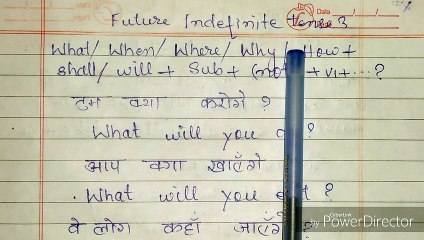 Data
Future Indefinite tense 3
What/ When/ Where/ Why / How +
shall/ will + Sub + + V1 + ... ?
तुम क्या करोगे ?
What will you ?
आप क्या खाएँगे
What will you ?
वे लोग कहाँ जाएँगे
by CyberLink PowerDirector